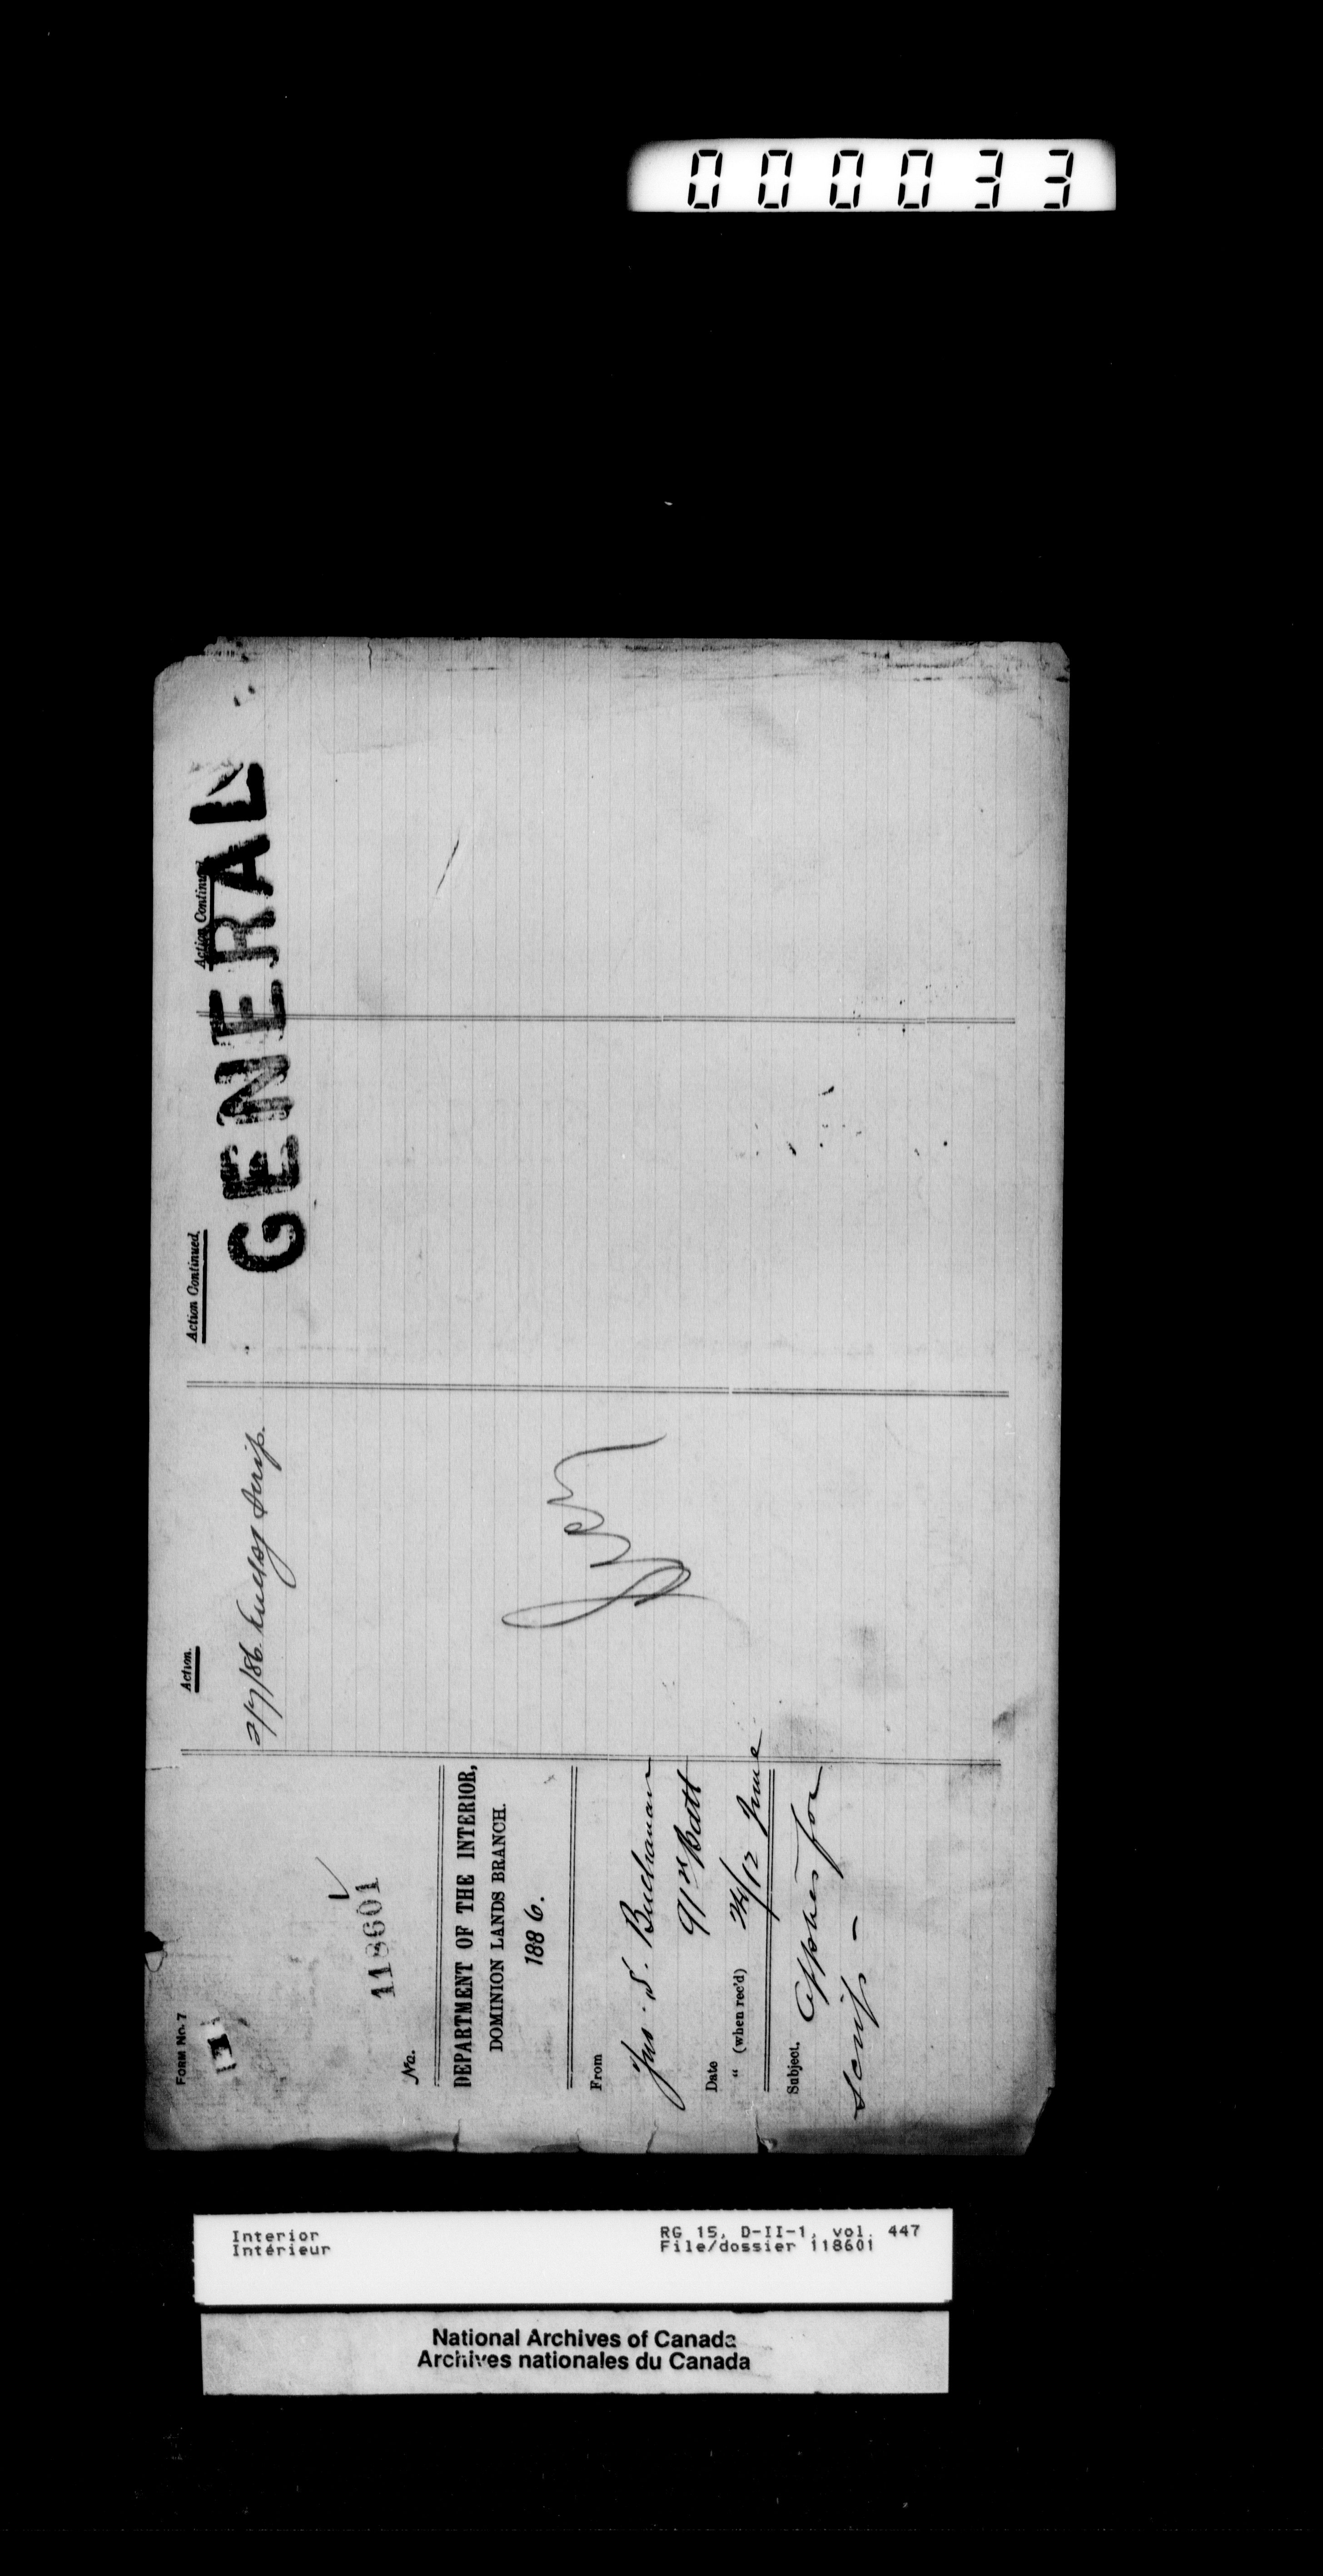 000033
FORM No. 7
No. 118601
DEPARTMENT OF THE INTERIOR,
DOMINION LANDS BRANCH.
1886.
From
Jno. S. Buchanan
91st Batt
Date
" (when rec'd) 24/12 June
Subject. Applies for
scrip -
Action.
2/7/86 Enclosg Scrip.
Action Continued.
GENERAL
Action Continued
Interior
Intérieur
RG 15, D-II-1, vol. 447
File/dossier 118601
National Archives of Canada
Archives nationales du Canada